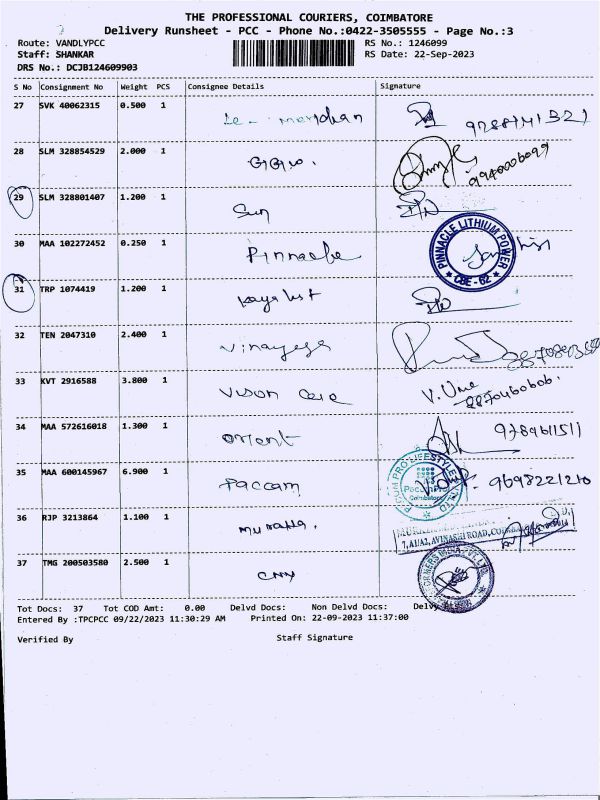 THE PROFESSIONAL COURIERS, COIMBATORE
Delivery Runsheet - PCC - Phone No.:0422-3505555 - Page No.:3
Route: VANDLYPCC RS No.: 1246099
Staff: SHANKAR RS Date: 22-Sep-2023
DRS No.: DCJB124609903
S No Consignment No Weight PCS Consignee Details Signature
27 SVK 40062315 0.500 1 Le- meridian
28 SLM 328854529 2.000 1 9940006099
29 SLM 328801407 1.200 1 Sun
30 MAA 102272452 0.250 1 Pinnacle PINNACLE LITHIUM POWER CBE - 62
31 TRP 1074419 1.200 1
32 TEN 2047310 2.400 1 Vinayaga
33 KVT 2916588 3.800 1 Vison Care V. Uma 8870460606.
34 MAA 572616018 1.300 1 Orient 9789611511
35 MAA 600145967 6.900 1 Paccam 9698221210
36 RJP 3213864 1.100 1 7,A1/A2, AVINASHI ROAD, COIMBA
37 TMG 200503580 2.500 1 CNN
Tot Docs: 37 Tot COD Amt: 0.00 Delvd Docs: Non Delvd Docs: Delv
Entered By :TPCPCC 09/22/2023 11:30:29 AM Printed On: 22-09-2023 11:37:00
Verified By Staff Signature